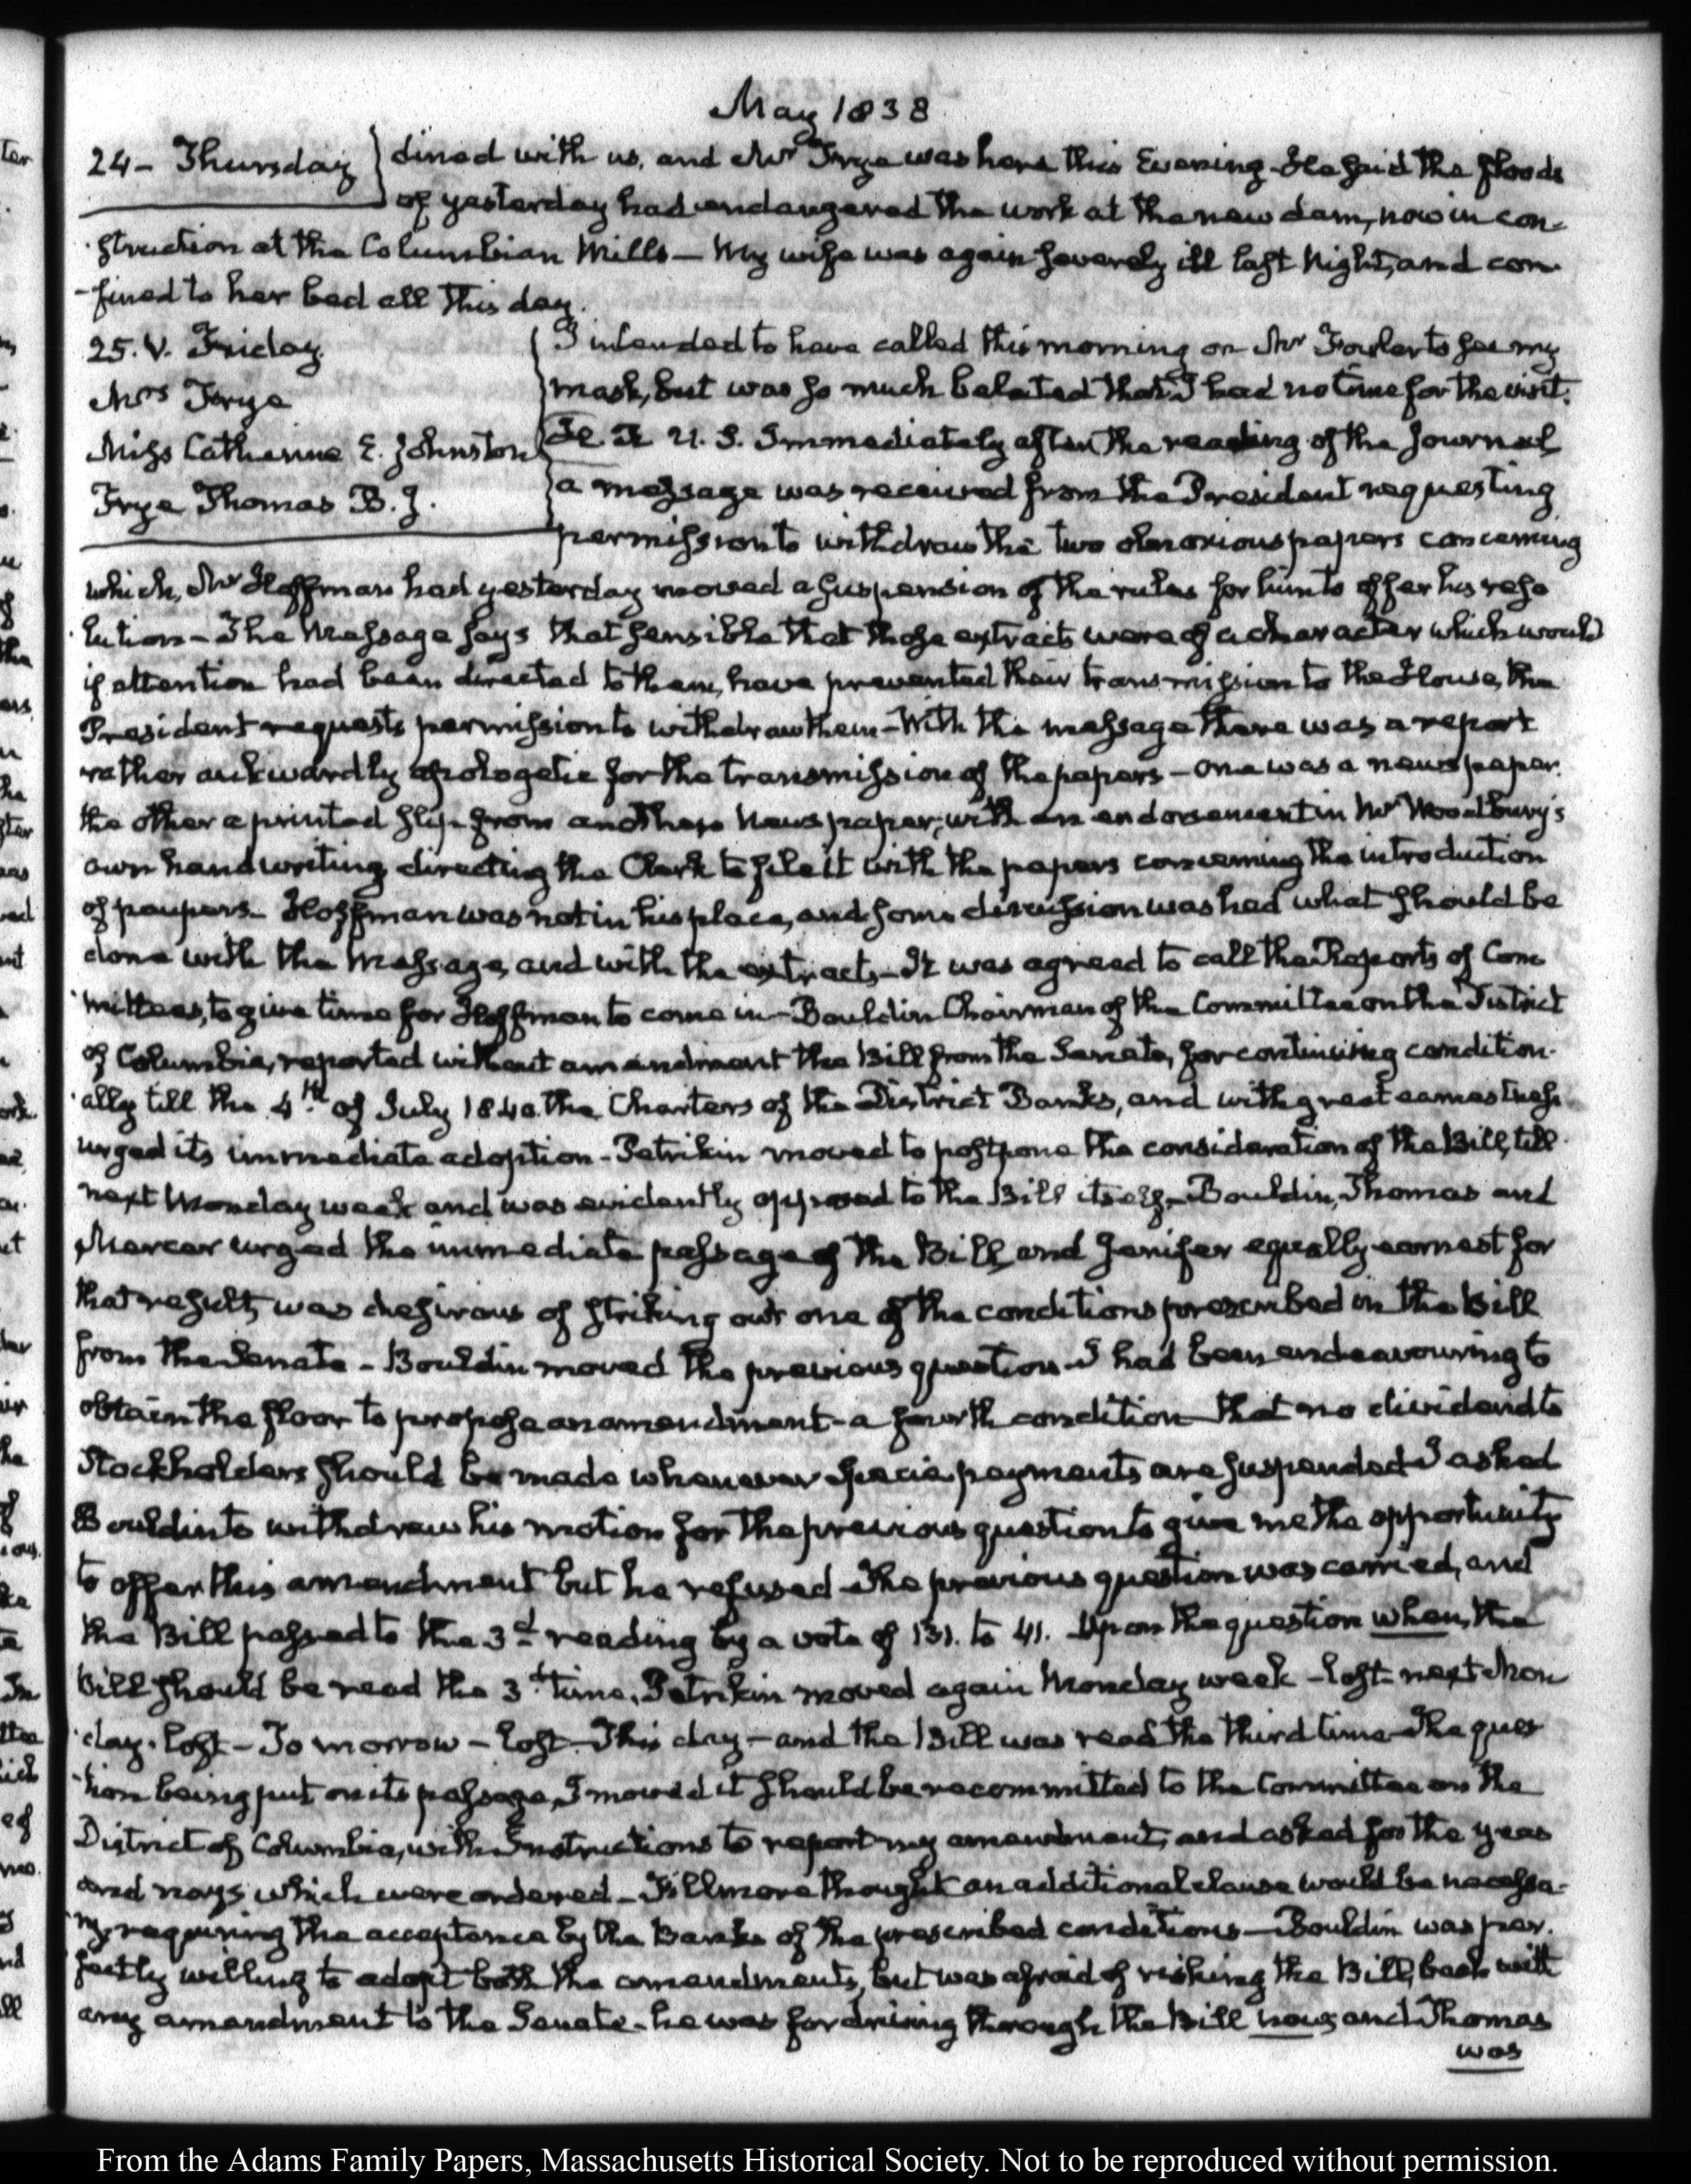 May 1838
24 - Thursday } dined with us, and Mr Frye was here this Evening - He said the floods
of yesterday had endangered the work at the new dam, now in con-
struction at the Columbian Mills — My wife was again severely ill last Night, and con-
-fined to her bed all this day.
25. V. Friday.
Mrs Frye
Miss Catherine E. Johnston
Frye Thomas B. J.
I intended to have called this morning on Mr Fowler to see my
mask, but was so much belated that I had no time for the visit.
H. R. U. S. Immediately after the reading of the Journal
a message was received from the President requesting
permission to withdraw the two obnoxious papers concerning
which, Mr Hoffman had yesterday moved a suspension of the rules for him to offer his reso
lution - The Message says that sensible that those extracts were of a character which would
if attention had been directed to them, have prevented their transmission to the House, the
President requests permission to withdraw them - With the message there was a report
rather awkwardly apologetic for the transmission of the papers - one was a newspaper.
the other a printed slip from another Newspaper; with an endorsement in Mr Woodbury's
own hand writing, directing the Clerk to file it with the papers concerning the introduction
of paupers - Hoffman was not in his place, and some discussion was had what should be
done with the Message, and with the extracts - It was agreed to call the Reports of Com
mittees, to give time for Hoffman to come in - Bouldin Chairman of the Committee on the District
of Columbia, reported without amendment the Bill from the Senate, for continuing condition-
ally till the 4th of July 1840. the Charters of the District Banks, and with great earnestness
urged its immediate adoption - Petrikin moved to postpone the consideration of the Bill, till
next Monday week and was evidently opposed to the Bill itself - Bouldin, Thomas and
Mercer urged the immediate passage of the Bill, and Jenifer equally earnest for
that result, was desirous of striking out one of the conditions prescribed in the Bill
from the Senate - Bouldin moved the previous question - I had been endeavouring to
obtain the floor to propose an amendment - a fourth condition that no dividend to
Stockholders should be made whenever specie payments are suspended - I asked
Bouldin to withdraw his motion for the previous question to give me the opportunity
to offer this amendment but he refused - The previous question was carried, and
the Bill passed to the 3d reading by a vote of 131. to 41. Upon the question when, the
bill should be read the 3d time, Petrikin moved again Monday week - lost - next Mon
day. lost - To morrow - lost. This day - and the Bill was read the third time - The ques
tion being put on its passage, I moved it should be recommitted to the Committee on the
District of Columbia, with Instructions to report my amendment, and asked for the yeas
and nays which were ordered - Fillmore thought an additional clause would be necessa-
ry, requiring the acceptance by the Banks of the prescribed conditions — Bouldin was per-
fectly willing to adopt both the amendments, but was afraid of risking the Bill, back with
any amendment to the Senate - he was for driving through the Bill now, and Thomas
was
From the Adams Family Papers, Massachusetts Historical Society. Not to be reproduced without permission.